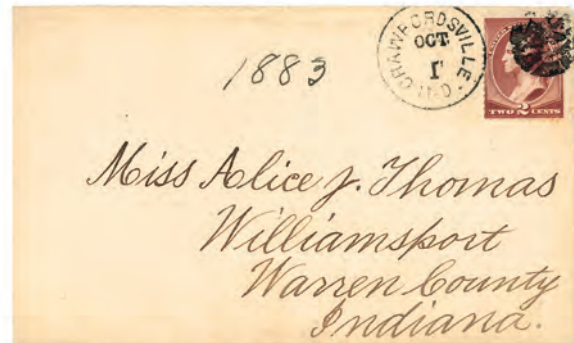 CRAWFORDSVILLE
OCT
1
IND.
1883
TWO 2 CENTS
Miss Alice J. Thomas
Williamsport
Warren County
Indiana.